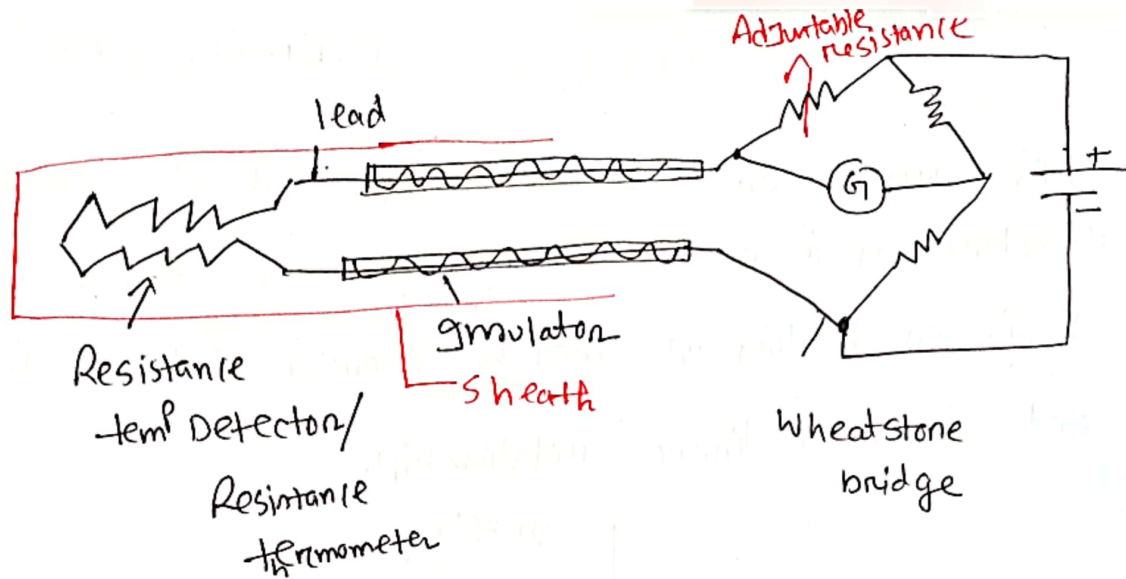 Adjustable
resistance
lead
G
+
-
Insulator
Sheath
Resistance
temp Detector/
Resistance
thermometer
Wheatstone
bridge